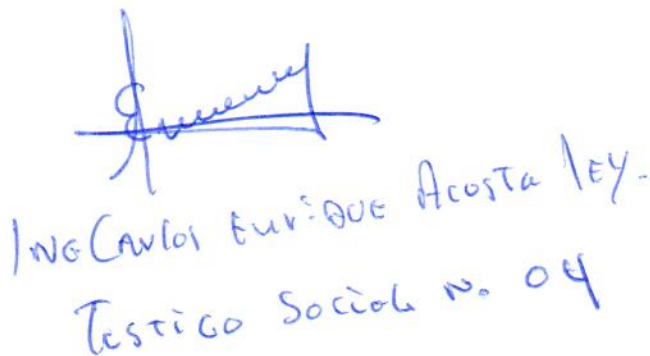 ING CARLOS ENRIQUE ACOSTA LEY.
TESTIGO SOCIAL No. 04